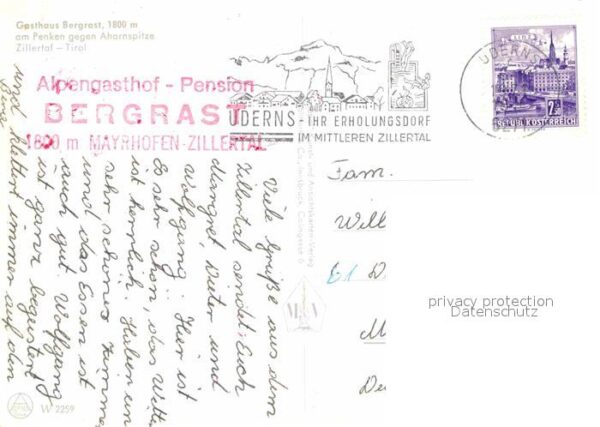 Gasthaus Bergrast, 1800 m
am Penken gegen Ahornspitze
Zillertal – Tirol
Alpengasthof - Pension
BERGRAST
1800 m MAYRHOFEN-ZILLERTAL
UDERNS
UDERNS - IHR ERHOLUNGSDORF
IM MITTLEREN ZILLERTAL
LINZ
2.-
REPUBLIK ÖSTERREICH
Viele Grüße aus dem
Zillertal sendet Euch
Margret, Dieter und
Wolfgang. Hier ist
es sehr schön, das Wetter
ist herrlich. Haben ein
sehr schönes Zimmer
und das Essen ist
auch gut. Wolfgang
ist ganz begeistert
und klettert immer auf den
Fam.
Will
61 D
M
De
privacy protection
Datenschutz
W 2259